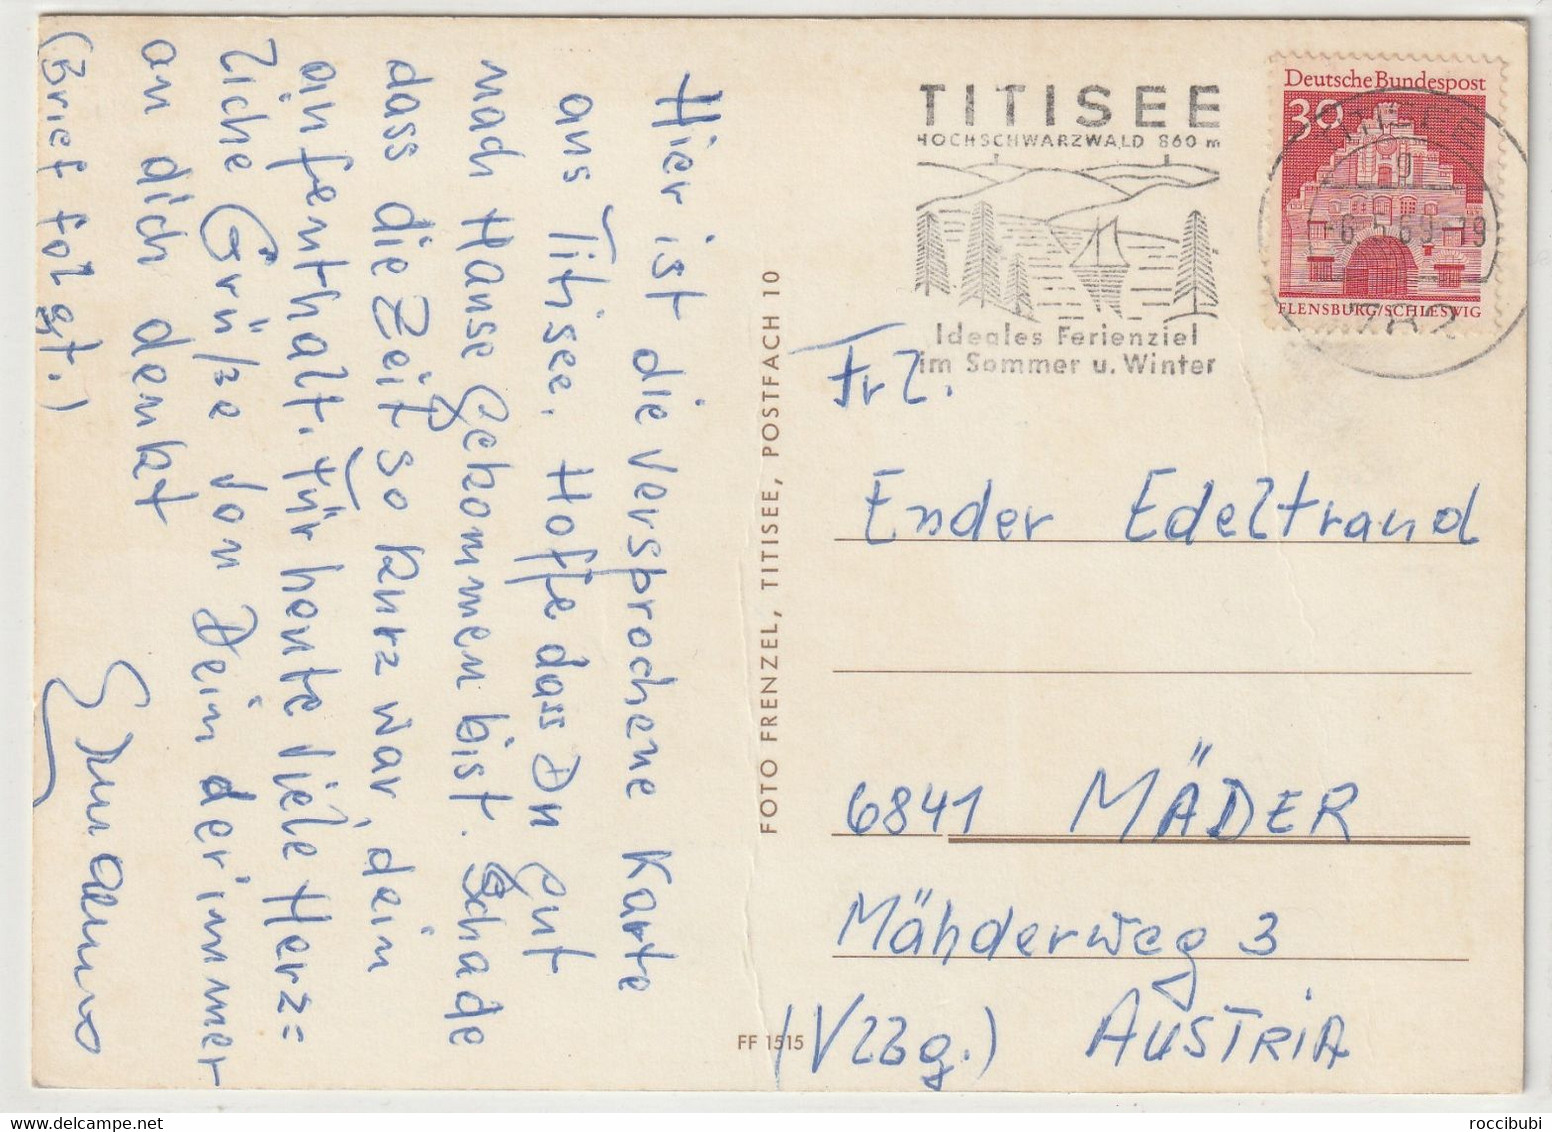 Hier ist die versprochene Karte
aus Titisee. Hoffe dass Du gut
nach Hause gekommen bist. Schade
dass die Zeit so kurz war, dein
aufenthalt. Für heute viele Herz=
liche Grüße von Deim der immer
an dich denkt
(Brief folgt.)
FOTO FRENZEL, TITISEE, POSTFACH 10
FF 1515
TITISEE
HOCHSCHWARZWALD 860 m
Ideales Ferienziel
im Sommer u. Winter
Deutsche Bundespost
30
FLENSBURG/SCHLESWIG
TITISEE
g
-6.5.69-19
782
Frl.
Ender Edeltraud
6841 MÄDER
Mähderweg 3
(Vzbg.) AUSTRIA
roccibubi